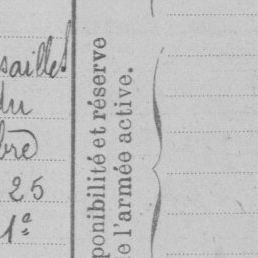 sailles
du
bre
25
1e
ponibilité et réserve
e l'armée active.